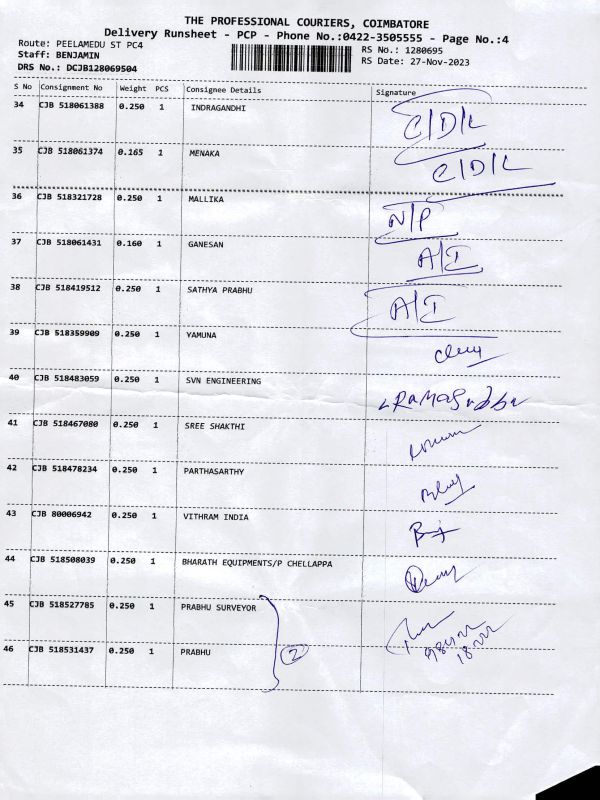 THE PROFESSIONAL COURIERS, COIMBATORE
Delivery Runsheet - PCP - Phone No.:0422-3505555 - Page No.:4
Route: PEELAMEDU ST PC4
RS No.: 1280695
Staff: BENJAMIN
RS Date: 27-Nov-2023
DRS No.: DCJB128069504
S No Consignment No Weight PCS Consignee Details Signature
34 CJB 518061388 0.250 1 INDRAGANDHI C/D/L
35 CJB 518061374 0.165 1 MENAKA C/D/L
36 CJB 518321728 0.250 1 MALLIKA N/P
37 CJB 518061431 0.160 1 GANESAN A/I
38 CJB 518419512 0.250 1 SATHYA PRABHU A/I
39 CJB 518359909 0.250 1 YAMUNA
40 CJB 518483059 0.250 1 SVN ENGINEERING
41 CJB 518467080 0.250 1 SREE SHAKTHI
42 CJB 518478234 0.250 1 PARTHASARTHY
43 CJB 80006942 0.250 1 VITHRAM INDIA
44 CJB 518508039 0.250 1 BHARATH EQUIPMENTS/P CHELLAPPA
45 CJB 518527785 0.250 1 PRABHU SURVEYOR
2
46 CJB 518531437 0.250 1 PRABHU